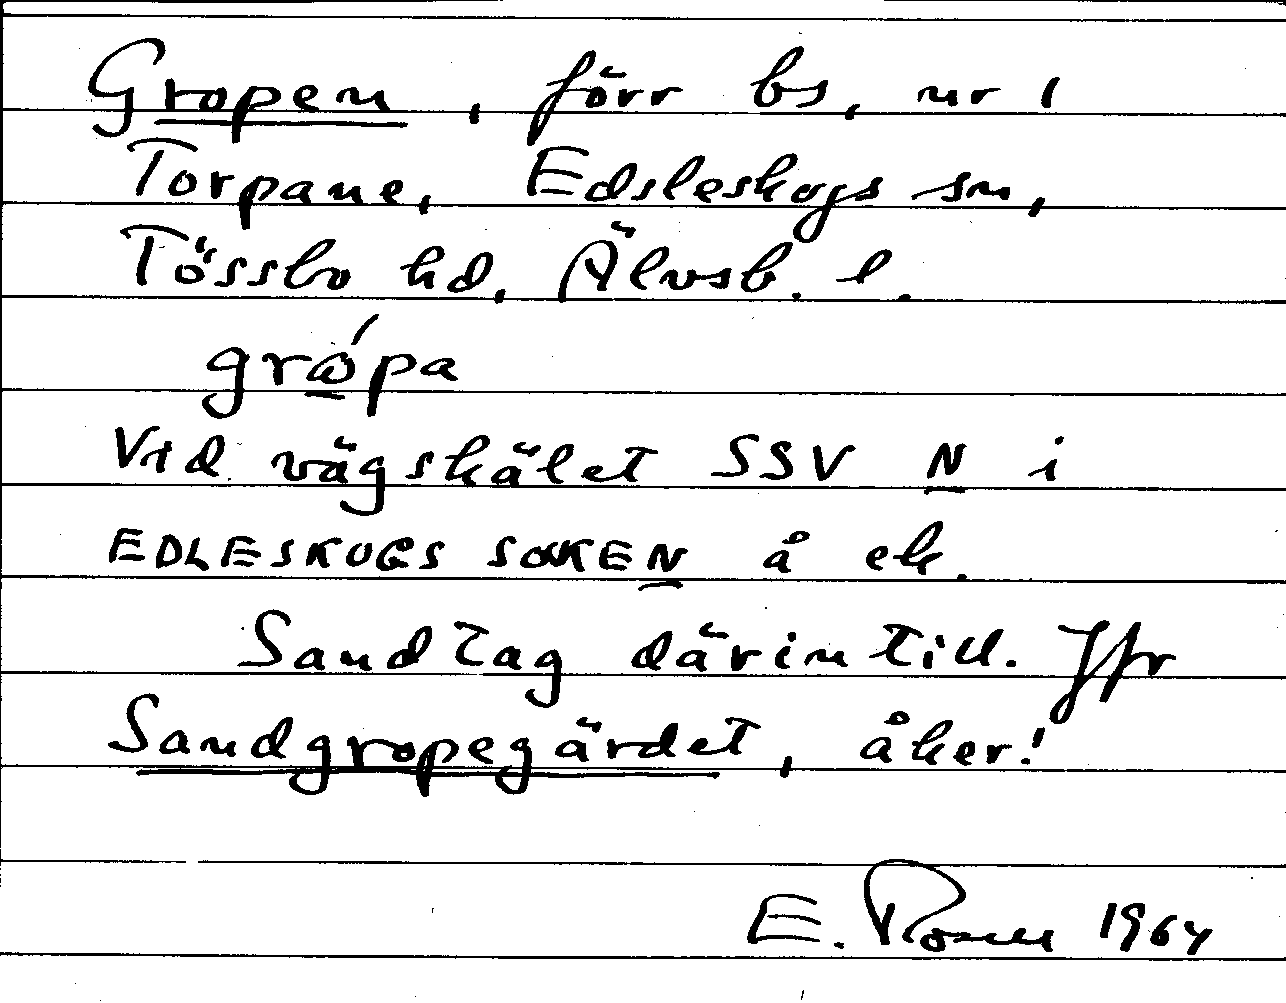 Gropen, förr bs, nr 1
Torpane, Edsleskogs sn,
Tössbo hd, Älvsb. l.
grώ̲pa
Vid vägskälet SSV N i
EDLESKOGS SOCKEN å ek.
Sandtag därintill. Jfr
Sandgropegärdet, åker!
E. Rosell 1964